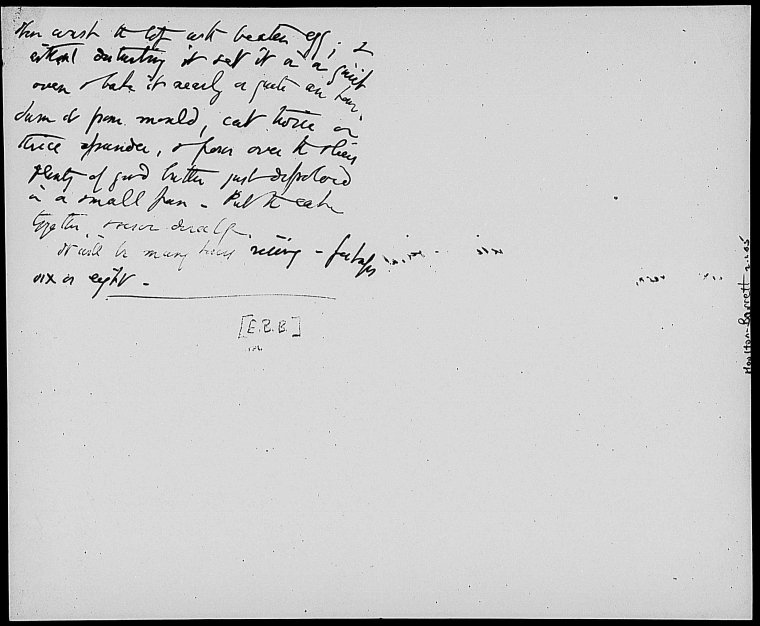 then wash the top with beaten egg; &
without disturbing it set it in a quick
oven & bake it nearly a quarter an hour.
Turn it from mould, cut twice or
thrice asunder, & pour over the slices
plenty of good butter just dissolved
in a small pan - Put the cake
together, & serve directly.
It will be many hours rising - perhaps
six or eight -
[E.B.B.]
Moulton-Barrett